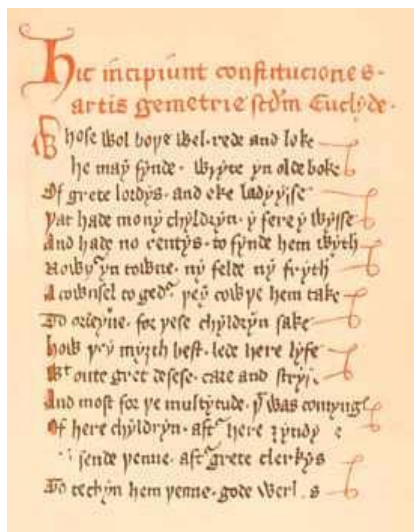 Hic incipiunt constituciones
artis gemetrie scdm Euclyde.
Whose wol boþe wel rede and loke
he may fynde wryte yn olde boke
Of grete lordys and eke ladyysse
þat hade mony chyldryn y fere y wysse
And hade no rentys to fynde hem wyth
Nowþr yn towne ny felde ny fryth
A cownsel togedr þey cowþe hem take
To ordeyne for þese chyldryn sake
how þey myȝth best lede here lyfe
Wt oute gret desese care and
And most for þe multytude þt was comyng
Of here chyldryn aftr here
sende þenne aftr grete clerkys
To techyn hem þenne gode